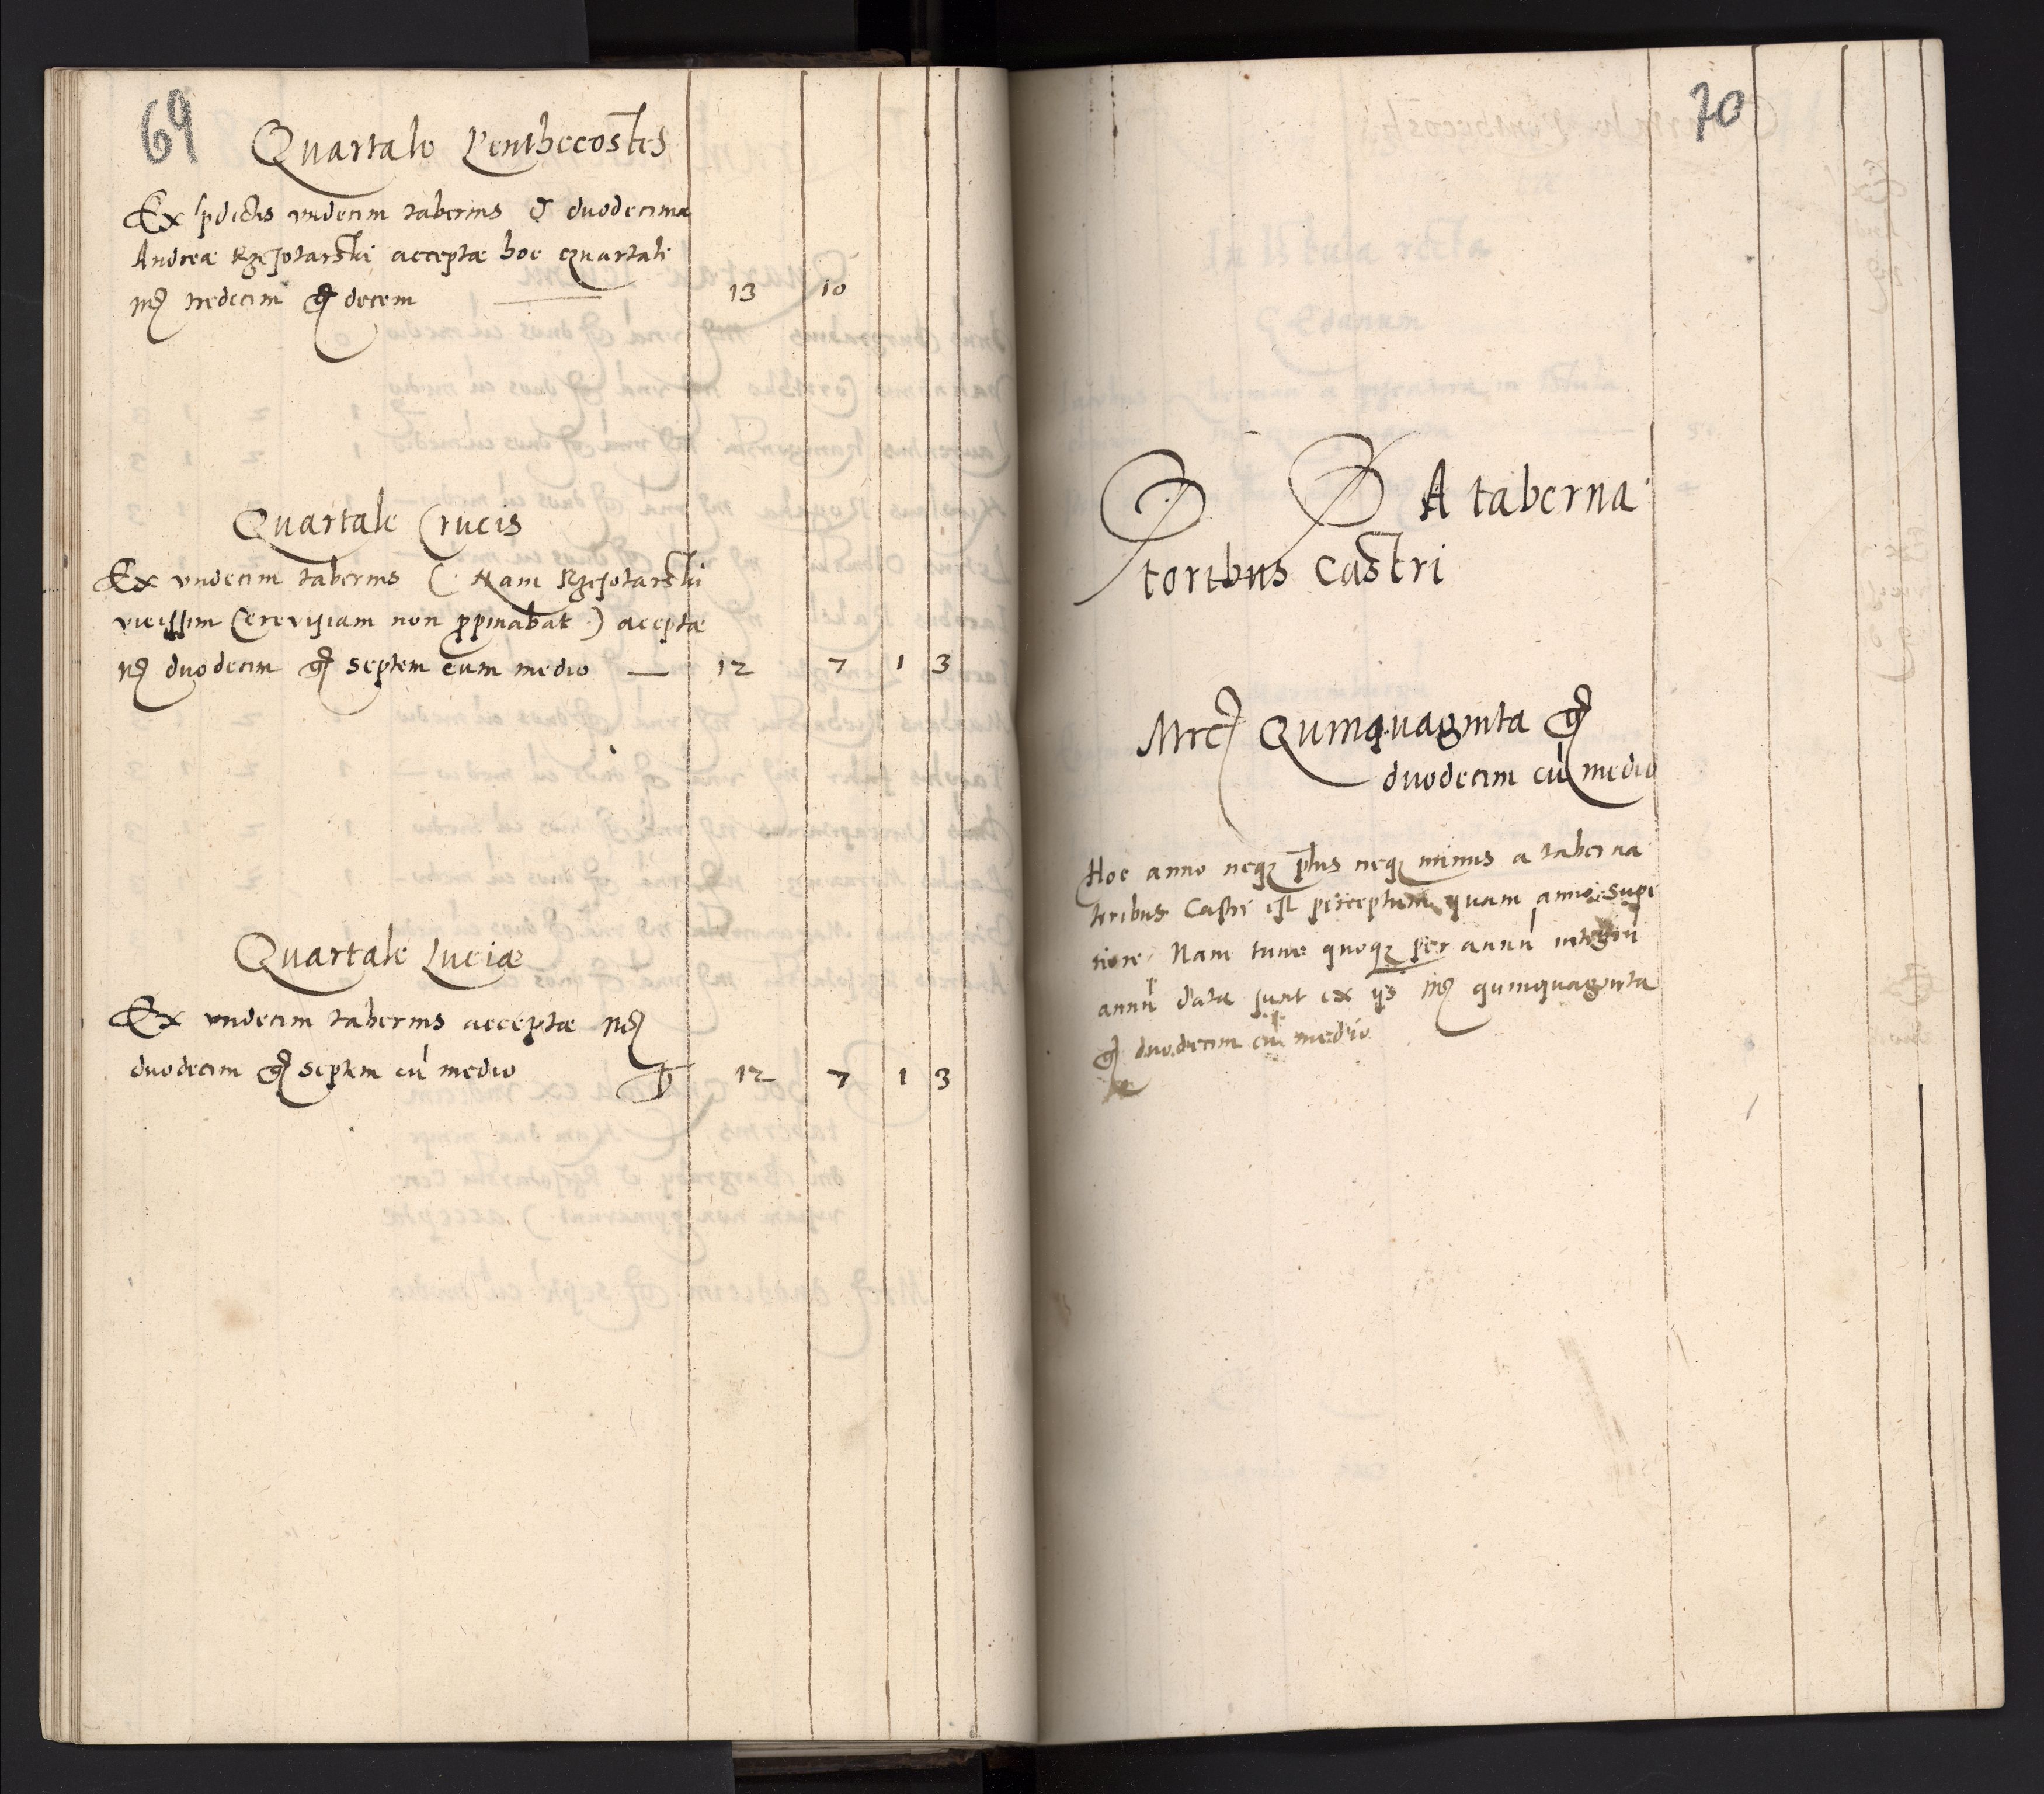 69
Quartale Penthecostes
Ex pdictis vndecim tabernis & duodecima
Andreæ Rzesotarski acceptæ hoc quartali
mꝛ tredecim gꝛ decem — 13 10
Quartale Crucis
Ex vndecim tabernis (: Nam Rzesotarski
vicissim Cerevisiam non ꝓpinabat :) acceptæ
mꝛ duodecim gꝛ septem cum medio — 12 7 1 3
Quartale Luciæ
Ex vndecim tabernis acceptæ mꝛ
duodecim gꝛ septem cũ medio 12 7 1 3
70
A taberna
toribus Castri
Mrcꝛ Quinquaginta gꝛ
duodecim cũ medio
Hoc anno neqꝫ plus neqꝫ minus a taberna
toribus Castri est perceptum quam anno supe
riore. Nam tunc quoqꝫ per annũ integrũ
annũ data sunt ex ijs mꝛ quinquaginta
gꝛ duodecim cũ medio